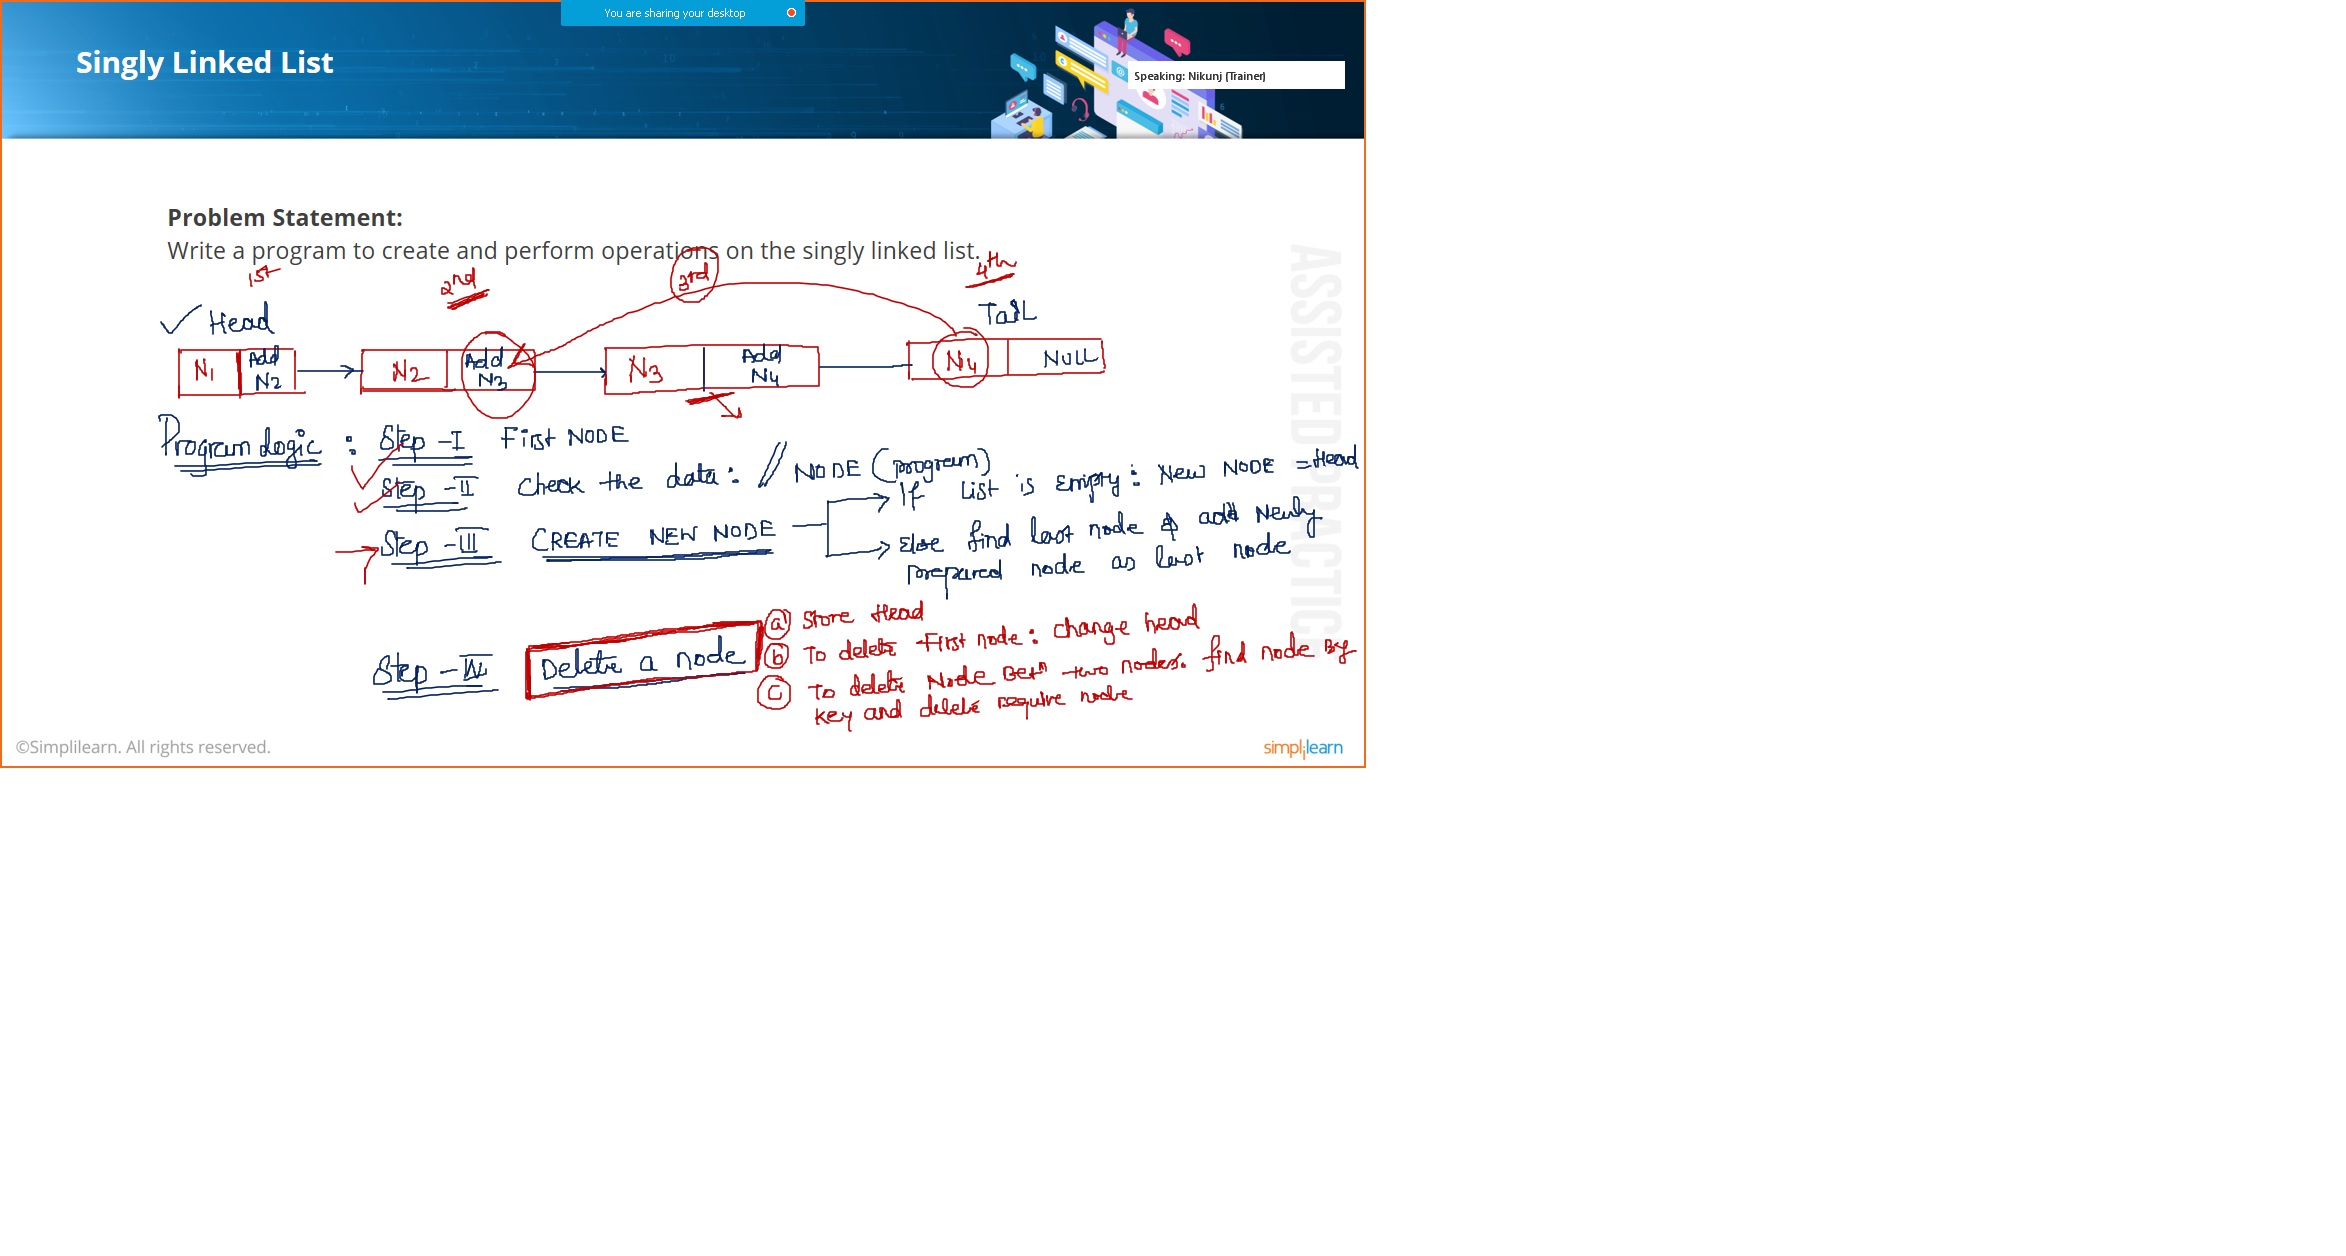 You are sharing your desktop
Singly Linked List
Speaking: Nikunj (Trainer)
Problem Statement:
Write a program to create and perform operations on the singly linked list.
1st 2nd 3rd 4th
Head Tail
N1 Add N2 N2 Add N3 N3 Add N4 N4 NULL
Program Logic : Step - I First NODE
Step - II Check the data : // NODE (program)
Step - III CREATE NEW NODE
If List is empty : New NODE = Head
Else find last node & add Newly
prepared node as last node
Step - IV Delete a node
a Store Head
b To delete First node : change head
c To delete Node Betn two nodes. find node By
key and delete require node
ASSISTED PRACTIC
©Simplilearn. All rights reserved.
simplilearn